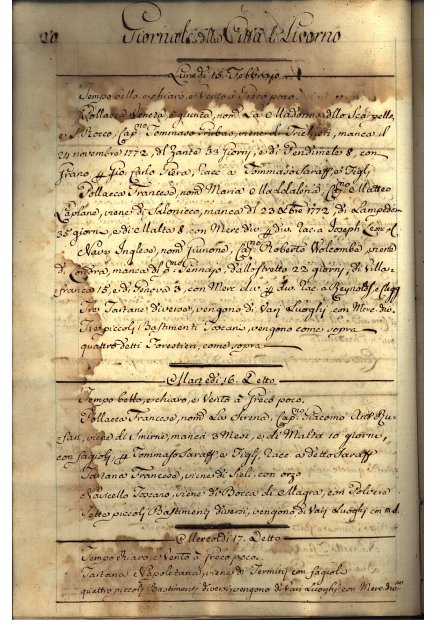 20 Giornale della Città di Livorno
Lunedì 15. Febbrajo
Tempo bello, e chiaro, e Vento à Greco poco.
Pollacca Veneta, è giunta, nom.ta La Madonna dello Scapello,
e S. Rocco, Cap.no Tommaso, viene di Trichieri, manca il
24 novembre 1772, dal Zante 33 Giorni, e di Pendimele 8, con
Grano, p Gio. Carlo Pera, Racc. a Tommaso Saraff e Figlj
Pollacca Francese, nom.ta Maria Maddalena, Cap.no Matteo
Laplane, viene di Salonicco, manca del 23 Xbre 1772, di Lampedosa
35 giorni, e di Malta 8, con Merc. div. p div. Racc. a Joseph
Nave Inglese, nom. Junone, Cap.no Roberto Welcombe, viene
di, manca del p.mo Gennajo, dallo Stretto 22 giorni, di Villa=
franca 15, e di Genova 3, con Merc. div. p div. Racc. a Reynolds,
Tre Tartane diverse, vengono di Varj Luoghi con Merc. div.
Tre piccoli Bastimenti Toscani, vengono come sopra
quattro detti Forestieri, come sopra
Martedì 16. Detto
Tempo bello, e chiaro, e Vento à Greco poco.
Pollacca Francese, nom. La Sirena, Cap.no Giacomo Ant.
fan, viene di Smirne, manca 3 Mesi, e di Malta 10 giorni,
con fagioli, p Tommaso Saraff e Figlj, Racc. a Detto Saraff
Tartana Francese, viene di, con orzo
Navicello Toscano, viene di Bocca di Magra, con Polvere
Sette piccoli Bastimenti diversi, vengono di Varj Luoghi con m.d.
Mercoldì 17. Detto
Tempo chiaro, e Vento à Greco poco.
Tartana Napoletana, viene di Termini con fagioli
quattro piccoli Bastimenti diversi, vengono di Varj Luoghi con Merc. div.